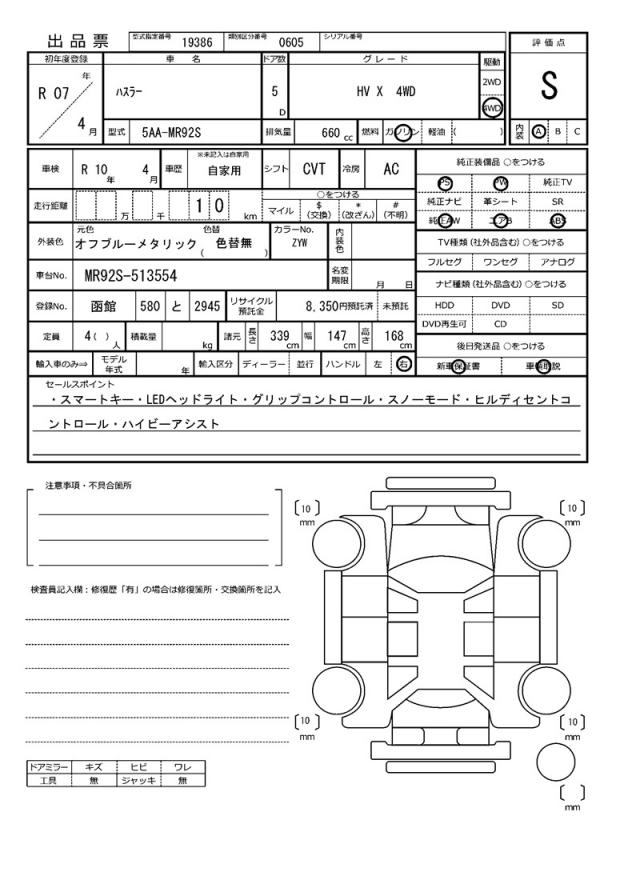 出品票 型式指定番号 19386 類別区分番号 0605 シリアル番号
評価点
S
初年度登録 車名 ドア数 グレード 駆動
R 07 年 4 月
ハスラー 5 D HV X 4WD 2WD
4WD
型式 5AA-MR92S 排気量 660 cc 燃料 ガソリン 軽油 ( ) 内装 A B C
車検 R 10 年 4 月 車歴 ※未記入は自家用 自家用 シフト CVT 冷房 AC
走行距離 万 千 1 0 km ○をつける
マイル $ (交換) * (改ざん) # (不明)
外装色 元色 オフブルーメタリック 色替 ( 色替無 ) カラーNo. ZYW 内装色
車台No. MR92S-513554 名変期限 月 日
登録No. 函館 580 と 2945 リサイクル預託金 8,350円預託済 未預託
定員 4( ) 人 積載量 kg 諸元 長さ 339 cm 幅 147 cm 高さ 168 cm
輸入車のみ⇒ モデル年式 年 輸入区分 ディーラー 並行 ハンドル 左 右
純正装備品 ○をつける
PS PW 純正TV
純正ナビ 革シート SR
純正AW エアB ABS
TV種類 (社外品含む) ○をつける
フルセグ ワンセグ アナログ
ナビ種類 (社外品含む) ○をつける
HDD DVD SD
DVD再生可 CD
後日発送品 ○をつける
新車保証書 車輌取説
セールスポイント
・スマートキー・LEDヘッドライト・グリップコントロール・スノーモード・ヒルディセントコ
ントロール・ハイビーアシスト
注意事項・不具合箇所
検査員記入欄：修復歴「有」の場合は修復箇所・交換箇所を記入
ドアミラー キズ ヒビ ワレ
工具 無 ジャッキ 無
[10] mm
[10] mm
[10] mm
[10] mm
[ ] mm